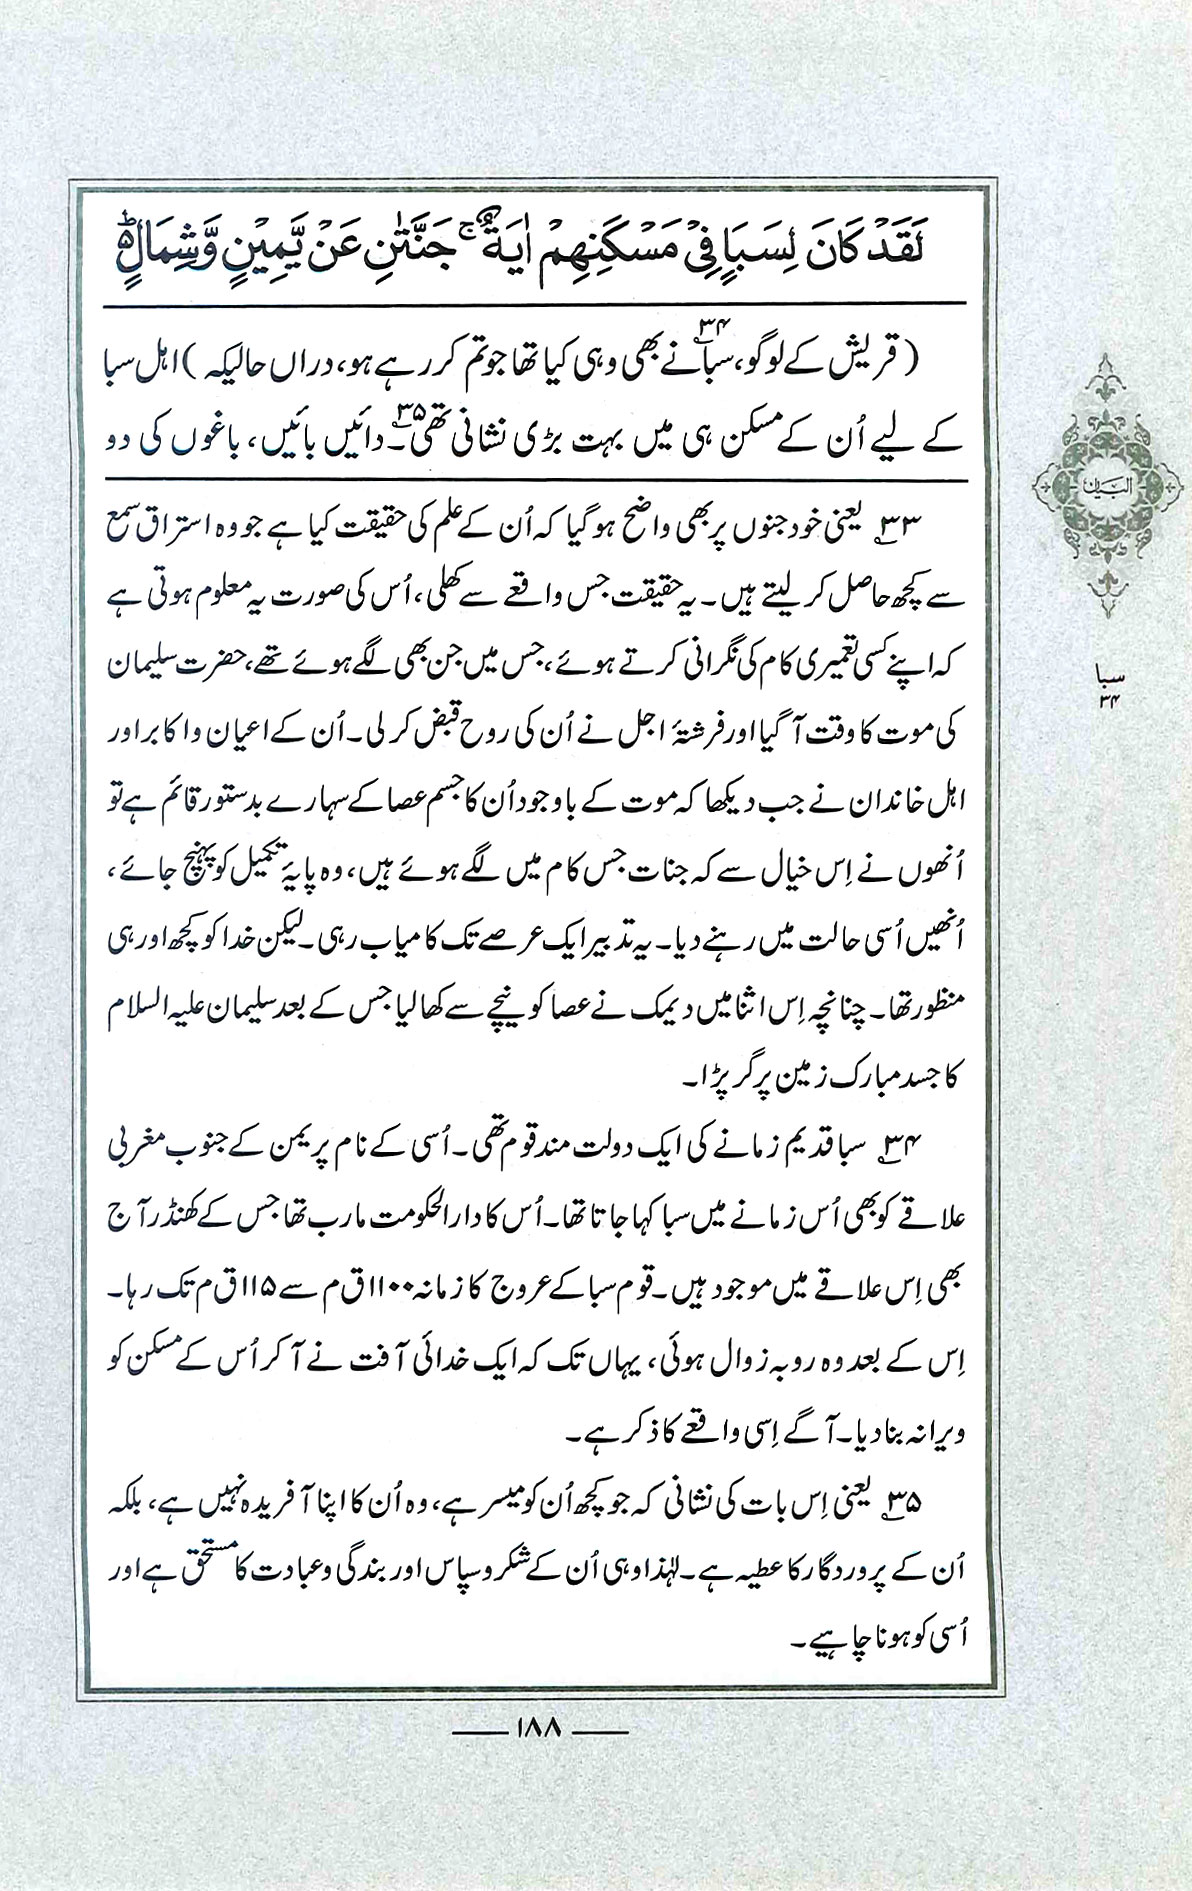 لَقَدْ كَانَ لِسَبَاٍ فِیْ مَسْکَنِهِمْ اٰیَةٌ ۚ جَنَّتٰنِ عَنْ یَّمِیْنٍ وَّشِمَالٍ ؕ
(قریش کے لوگو، سبا۳۴ نے بھی وہی کیا تھا جو تم کر رہے ہو، دراں حالیکہ) اہل سبا
کے لیے اُن کے مسکن ہی میں بہت بڑی نشانی تھی۳۵۔ دائیں بائیں، باغوں کی دو
۳۳؎ یعنی خود جنوں پر بھی واضح ہو گیا کہ اُن کے علم کی حقیقت کیا ہے جو وہ استراق سمع
سے کچھ حاصل کر لیتے ہیں۔ یہ حقیقت جس واقعے سے کھلی، اُس کی صورت یہ معلوم ہوتی ہے
کہ اپنے کسی تعمیری کام کی نگرانی کرتے ہوئے، جس میں جن بھی لگے ہوئے تھے، حضرت سلیمان
کی موت کا وقت آ گیا اور فرشتۂ اجل نے اُن کی روح قبض کر لی۔ اُن کے اعیان و اکابر اور
اہل خاندان نے جب دیکھا کہ موت کے باوجود اُن کا جسم عصا کے سہارے بدستور قائم ہے تو
اُنھوں نے اِس خیال سے کہ جنات جس کام میں لگے ہوئے ہیں، وہ پایۂ تکمیل کو پہنچ جائے،
اُنھیں اُسی حالت میں رہنے دیا۔ یہ تدبیر ایک عرصے تک کامیاب رہی۔ لیکن خدا کو کچھ اور ہی
منظور تھا۔ چنانچہ اِس اثنا میں دیمک نے عصا کو نیچے سے کھا لیا جس کے بعد سلیمان علیہ السلام
کا جسد مبارک زمین پر گر پڑا۔
۳۴؎ سبا قدیم زمانے کی ایک دولت مند قوم تھی۔ اُسی کے نام پر یمن کے جنوب مغربی
علاقے کو بھی اُس زمانے میں سبا کہا جاتا تھا۔ اُس کا دارالحکومت مارب تھا جس کے کھنڈر آج
بھی اِس علاقے میں موجود ہیں۔ قوم سبا کے عروج کا زمانہ ۱۱۰۰ ق م سے ۱۱۵ ق م تک رہا۔
اِس کے بعد وہ روبہ زوال ہوئی، یہاں تک کہ ایک خدائی آفت نے آ کر اُس کے مسکن کو
ویرانہ بنا دیا۔ آگے اِسی واقعے کا ذکر ہے۔
۳۵؎ یعنی اِس بات کی نشانی کہ جو کچھ اُن کو میسر ہے، وہ اُن کا اپنا آفریدہ نہیں ہے، بلکہ
اُن کے پروردگار کا عطیہ ہے۔ لہٰذا وہی اُن کے شکر و سپاس اور بندگی و عبادت کا مستحق ہے اور
اُسی کو ہونا چاہیے۔
البیان
سبا
۳۴
۱۸۸